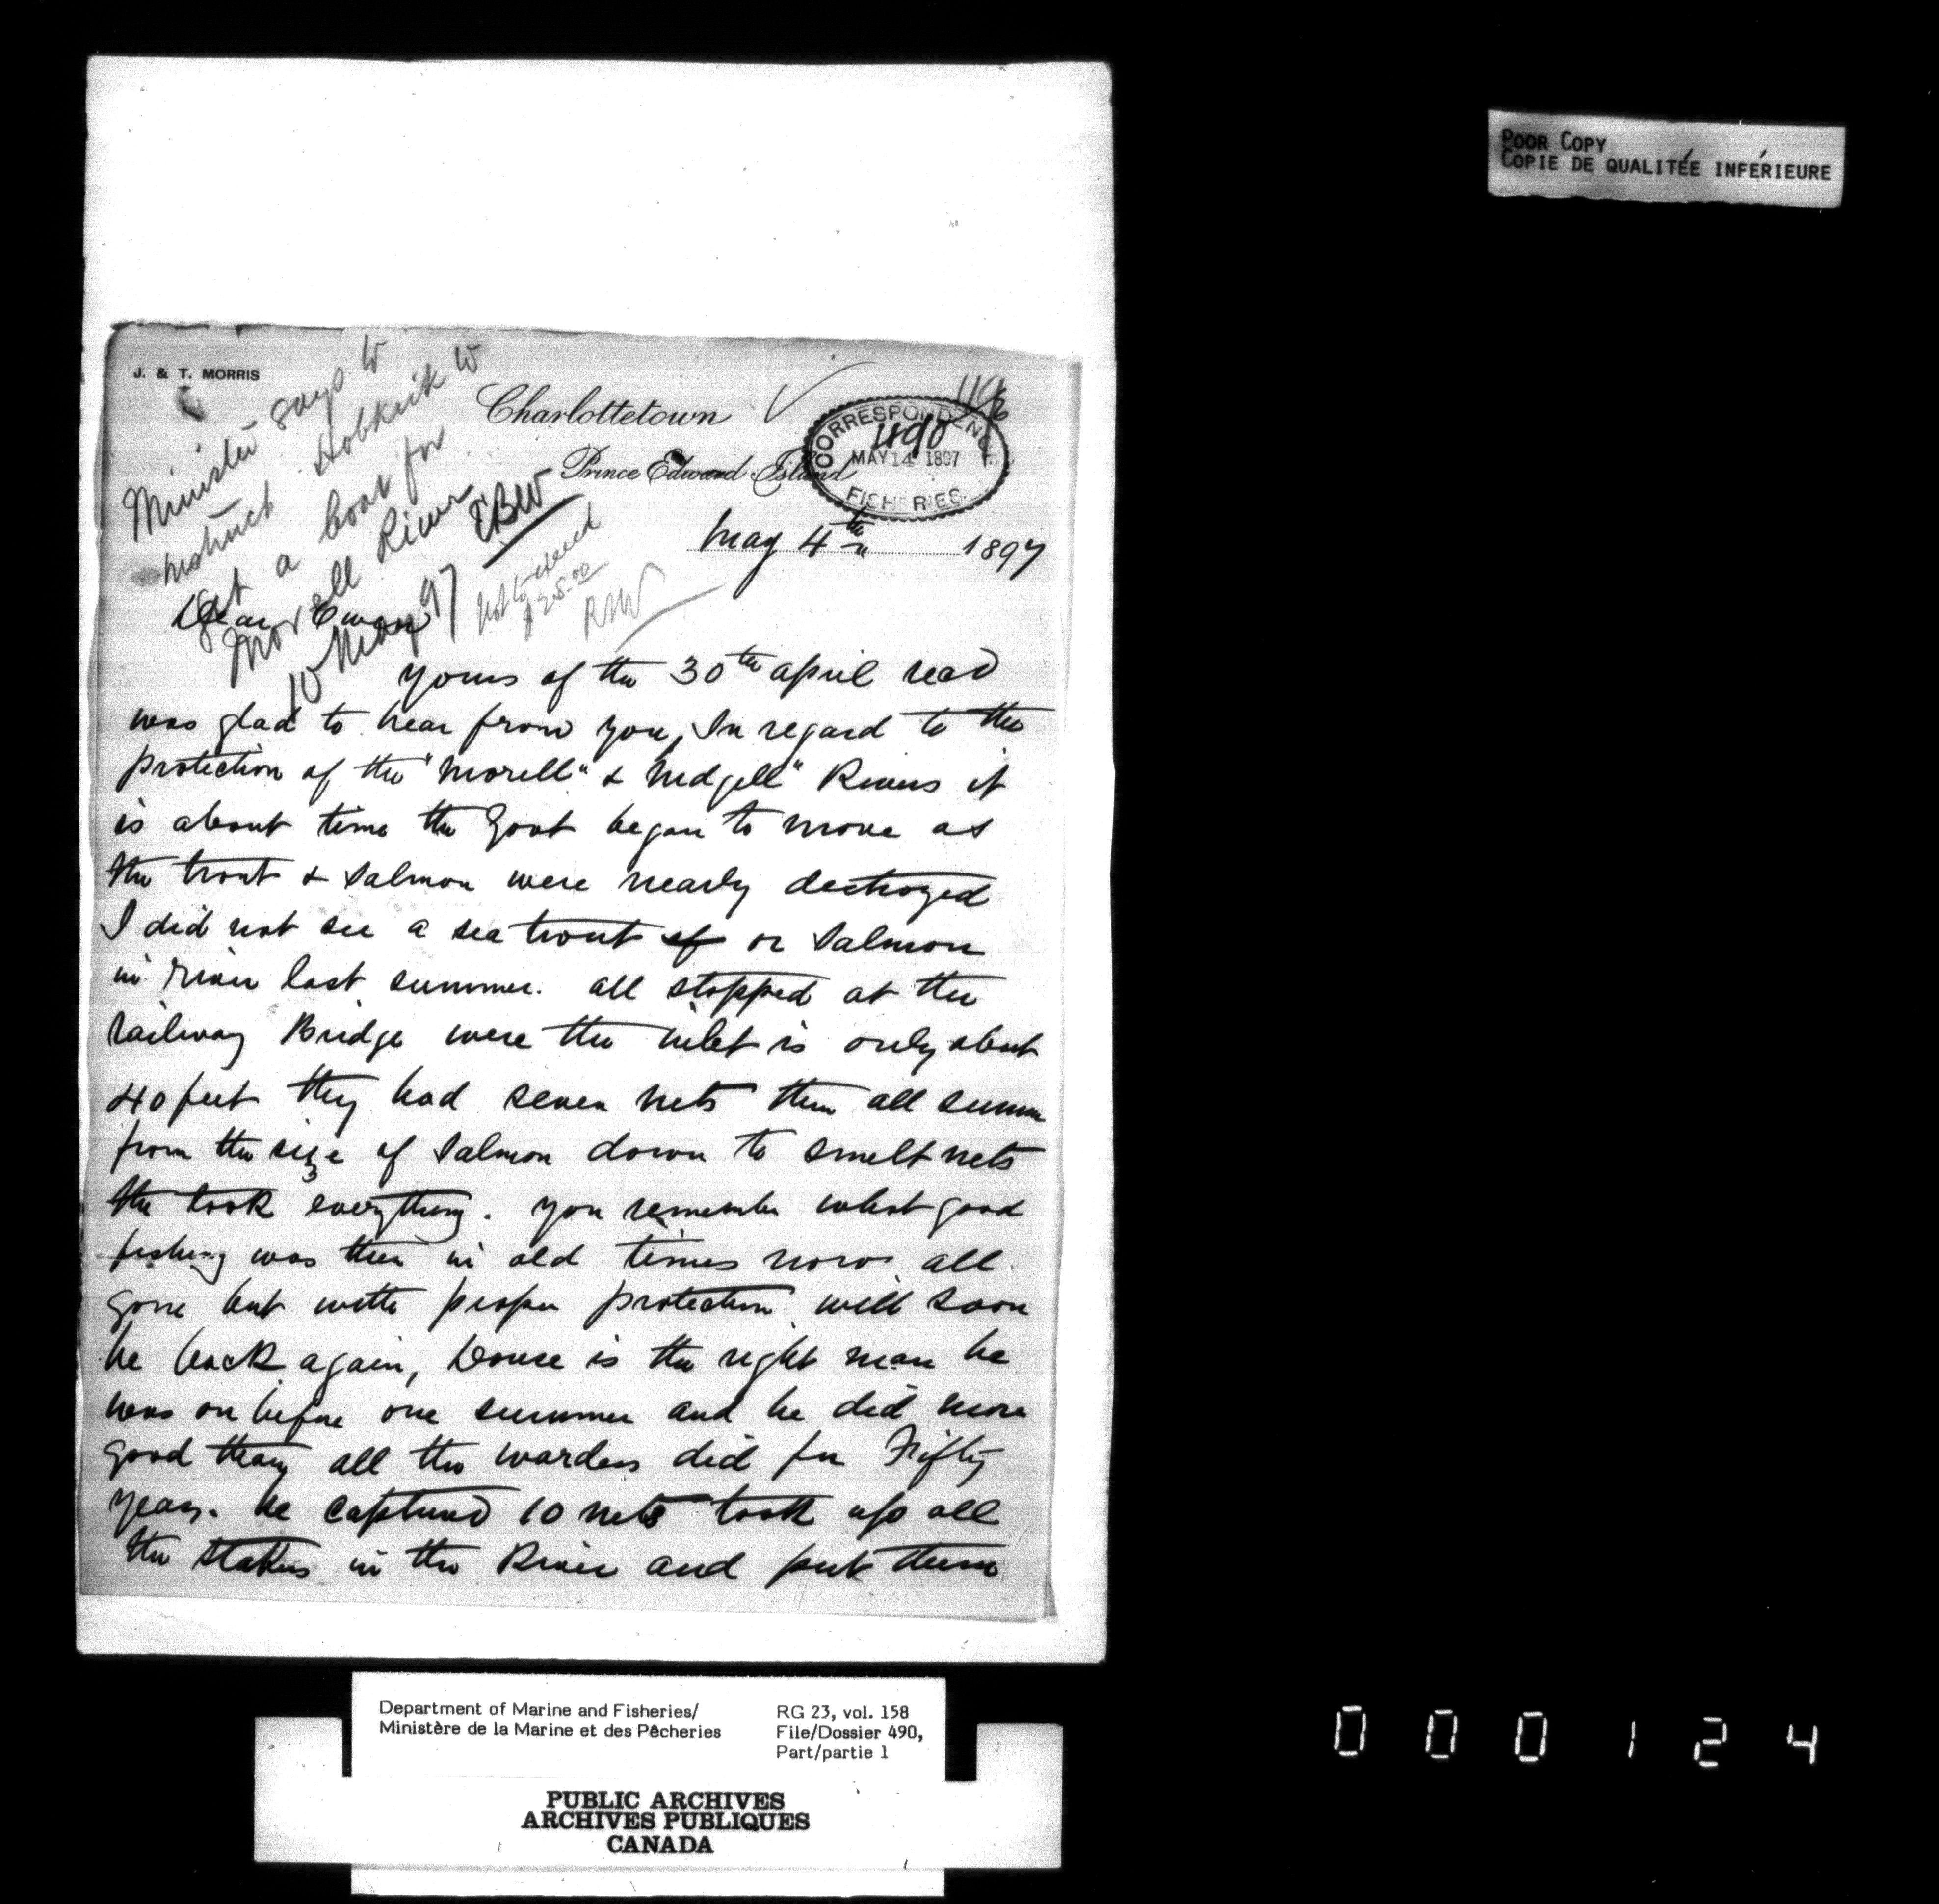 POOR COPY
COPIE DE QUALITÉE INFÉRIEURE
J. & T. MORRIS
Minister says to
instruct Hobkirk to
get a boat for
Morell River
EBW
10 May 97
not to exceed
$25.00
Charlottetown
Prince Edward Island
CORRESPONDENCE
490
MAY 14 1897
FISHERIES
May 4th 1897
Dear Ewen
Yours of the 30th april recd
was glad to hear from you, In regard to the
protection of the "Morell" & Midgell" Rivers it
is about time the Govt began to move as
the trout & Salmon were nearly destroyed
I did not see a sea trout of or Salmon
in river last summer. all stopped at the
Railway Bridge were the inlet is only about
40 feet they had seven nets then all summer
from the size of Salmon down to smelt nets
the took everything. you remember what good
fishing was then in old times now all
gone but with proper protection will soon
be back again, Douse is the right man he
was on before one summer and he did more
good than all the wardens did for Fifty
years. he captured 10 nets took up all
the stakes in the River and put them
Department of Marine and Fisheries/
Ministère de la Marine et des Pêcheries
RG 23, vol. 158
File/Dossier 490,
Part/partie 1
PUBLIC ARCHIVES
ARCHIVES PUBLIQUES
CANADA
000124